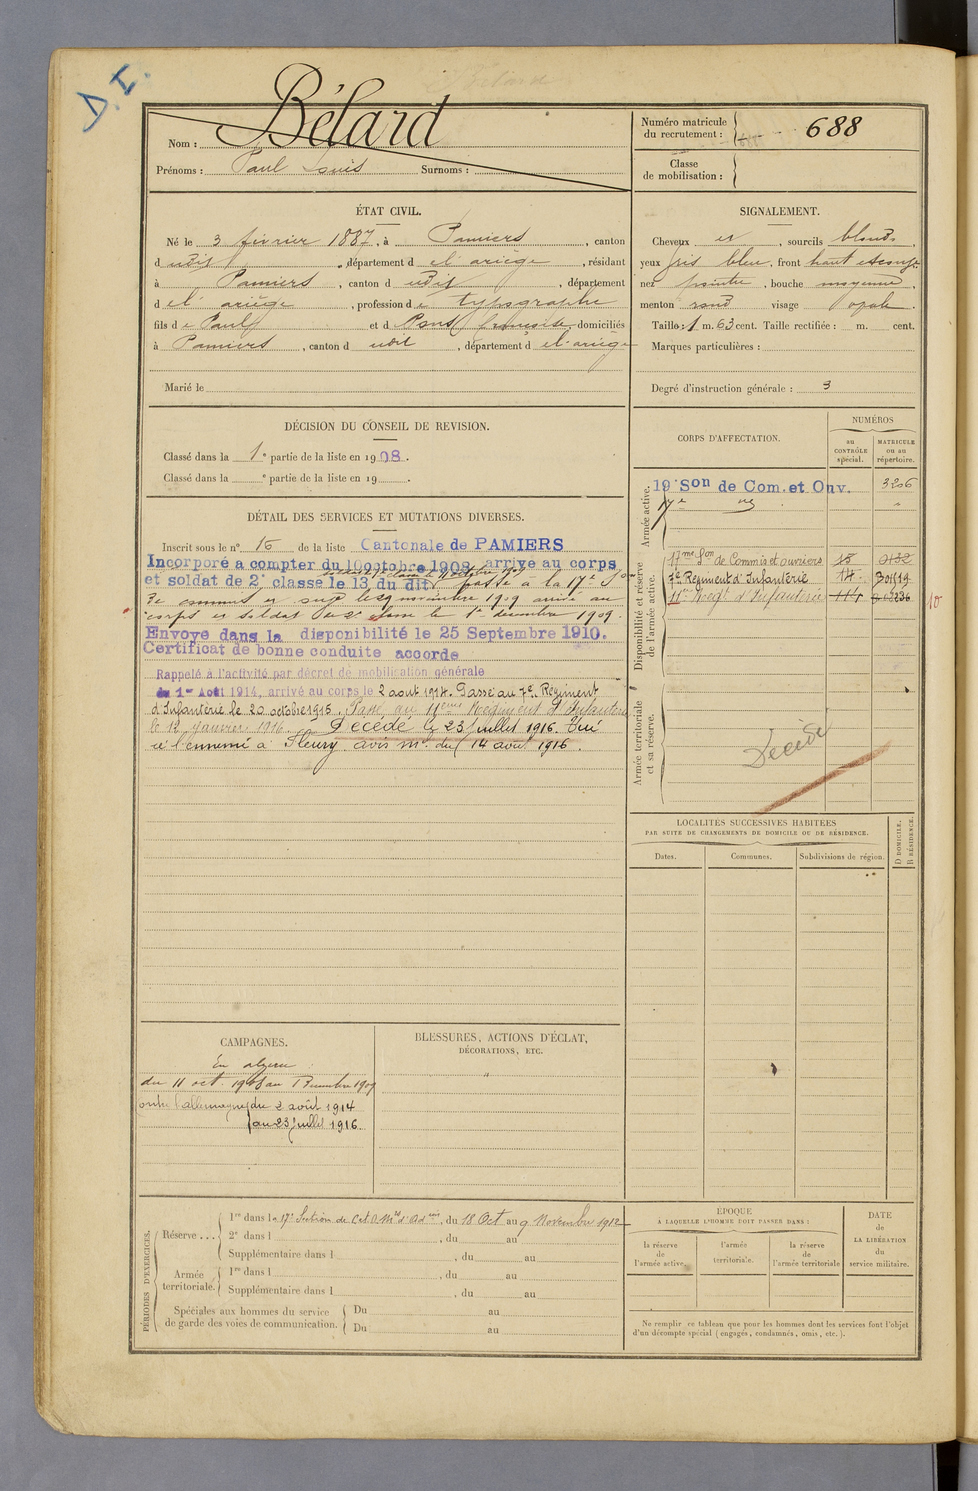 D.I.
Nom : Bélard
Prénoms : Paul Louis Surnoms :
Numéro matricule du recrutement : 688
Classe de mobilisation :
ÉTAT CIVIL.
Né le 3 février 1887, à Pamiers, canton
dudit, département de l'ariège, résidant
à Pamiers, canton dudit, département
de l'ariège, profession de typographe
fils de Paul et de Pons françoise, domiciliés
à Pamiers, canton dudit, département de l'ariège
Marié le
SIGNALEMENT.
Cheveux et, sourcils blonds,
yeux gris bleu, front haut
nez pointu, bouche moyenne,
menton rond visage ovale.
Taille : 1 m. 63 cent. Taille rectifiée : m. cent.
Marques particulières :
Degré d'instruction générale : 3
DÉCISION DU CONSEIL DE REVISION.
Classé dans la 1e partie de la liste en 1908.
Classé dans la e partie de la liste en 19 .
DÉTAIL DES SERVICES ET MUTATIONS DIVERSES.
Inscrit sous le n° 16 de la liste Cantonale de PAMIERS
Incorporé à compter du 10 octobre 1908, arrivé au corps
et soldat de 2e classe le 13 du dit, passé à la 17e Son
de commis et le 29 novembre 1909 arrivé au
corps et soldat de 2e classe le 1er décembre 1909.
Envoyé dans la disponibilité le 25 Septembre 1910.
Certificat de bonne conduite accordé
Rappelé à l'activité par décret de mobilisation générale
du 1er Août 1914, arrivé au corps le 2 aout 1914. Passé au 7e Régiment
d'Infanterie le 20 octobre 1915. Passé au 11ème Régiment d'Infanterie
le 12 janvier 1916. Décédé le 23 juillet 1916. Tué
à l'ennemi à Fleury. avis Mel du 14 août 1916.
CORPS D'AFFECTATION.
NUMÉROS
au CONTRÔLE spécial.
MATRICULE ou au répertoire.
Armée active.
19e Son de Com. et Ouv. 3206
17e
Disponibilité et réserve de l'armée active.
17me Son de Commis et ouvriers 15
7e Régiment d'Infanterie 14
11e Regt d'Infanterie
10
Armée territoriale et sa réserve.
Décédé
LOCALITÉS SUCCESSIVES HABITÉES
PAR SUITE DE CHANGEMENTS DE DOMICILE OU DE RÉSIDENCE.
Dates. Communes. Subdivisions de région. D DOMICILE. R RÉSIDENCE.
CAMPAGNES.
En algérie
du 11 oct 1908 au 1 Décembre 1909
contre l'allemagne du 2 août 1914
au 23 juillet 1916.
BLESSURES, ACTIONS D'ÉCLAT,
DÉCORATIONS, ETC.
"
PÉRIODES D'EXERCICES.
Réserve ... 1re dans la 17e Section de C et O Mres d'Adon, du 18 Oct au 9 Novembre 1912
2e dans l , du au
Supplémentaire dans l , du au
Armée territoriale. 1re dans l , du au
Supplémentaire dans l , du au
Spéciales aux hommes du service de garde des voies de communication. Du au
Du au
ÉPOQUE
À LAQUELLE L'HOMME DOIT PASSER DANS :
la réserve de l'armée active.
l'armée territoriale.
la réserve de l'armée territoriale
DATE de LA LIBÉRATION du service militaire.
Ne remplir ce tableau que pour les hommes dont les services font l'objet
d'un décompte spécial (engagés, condamnés, omis, etc.).